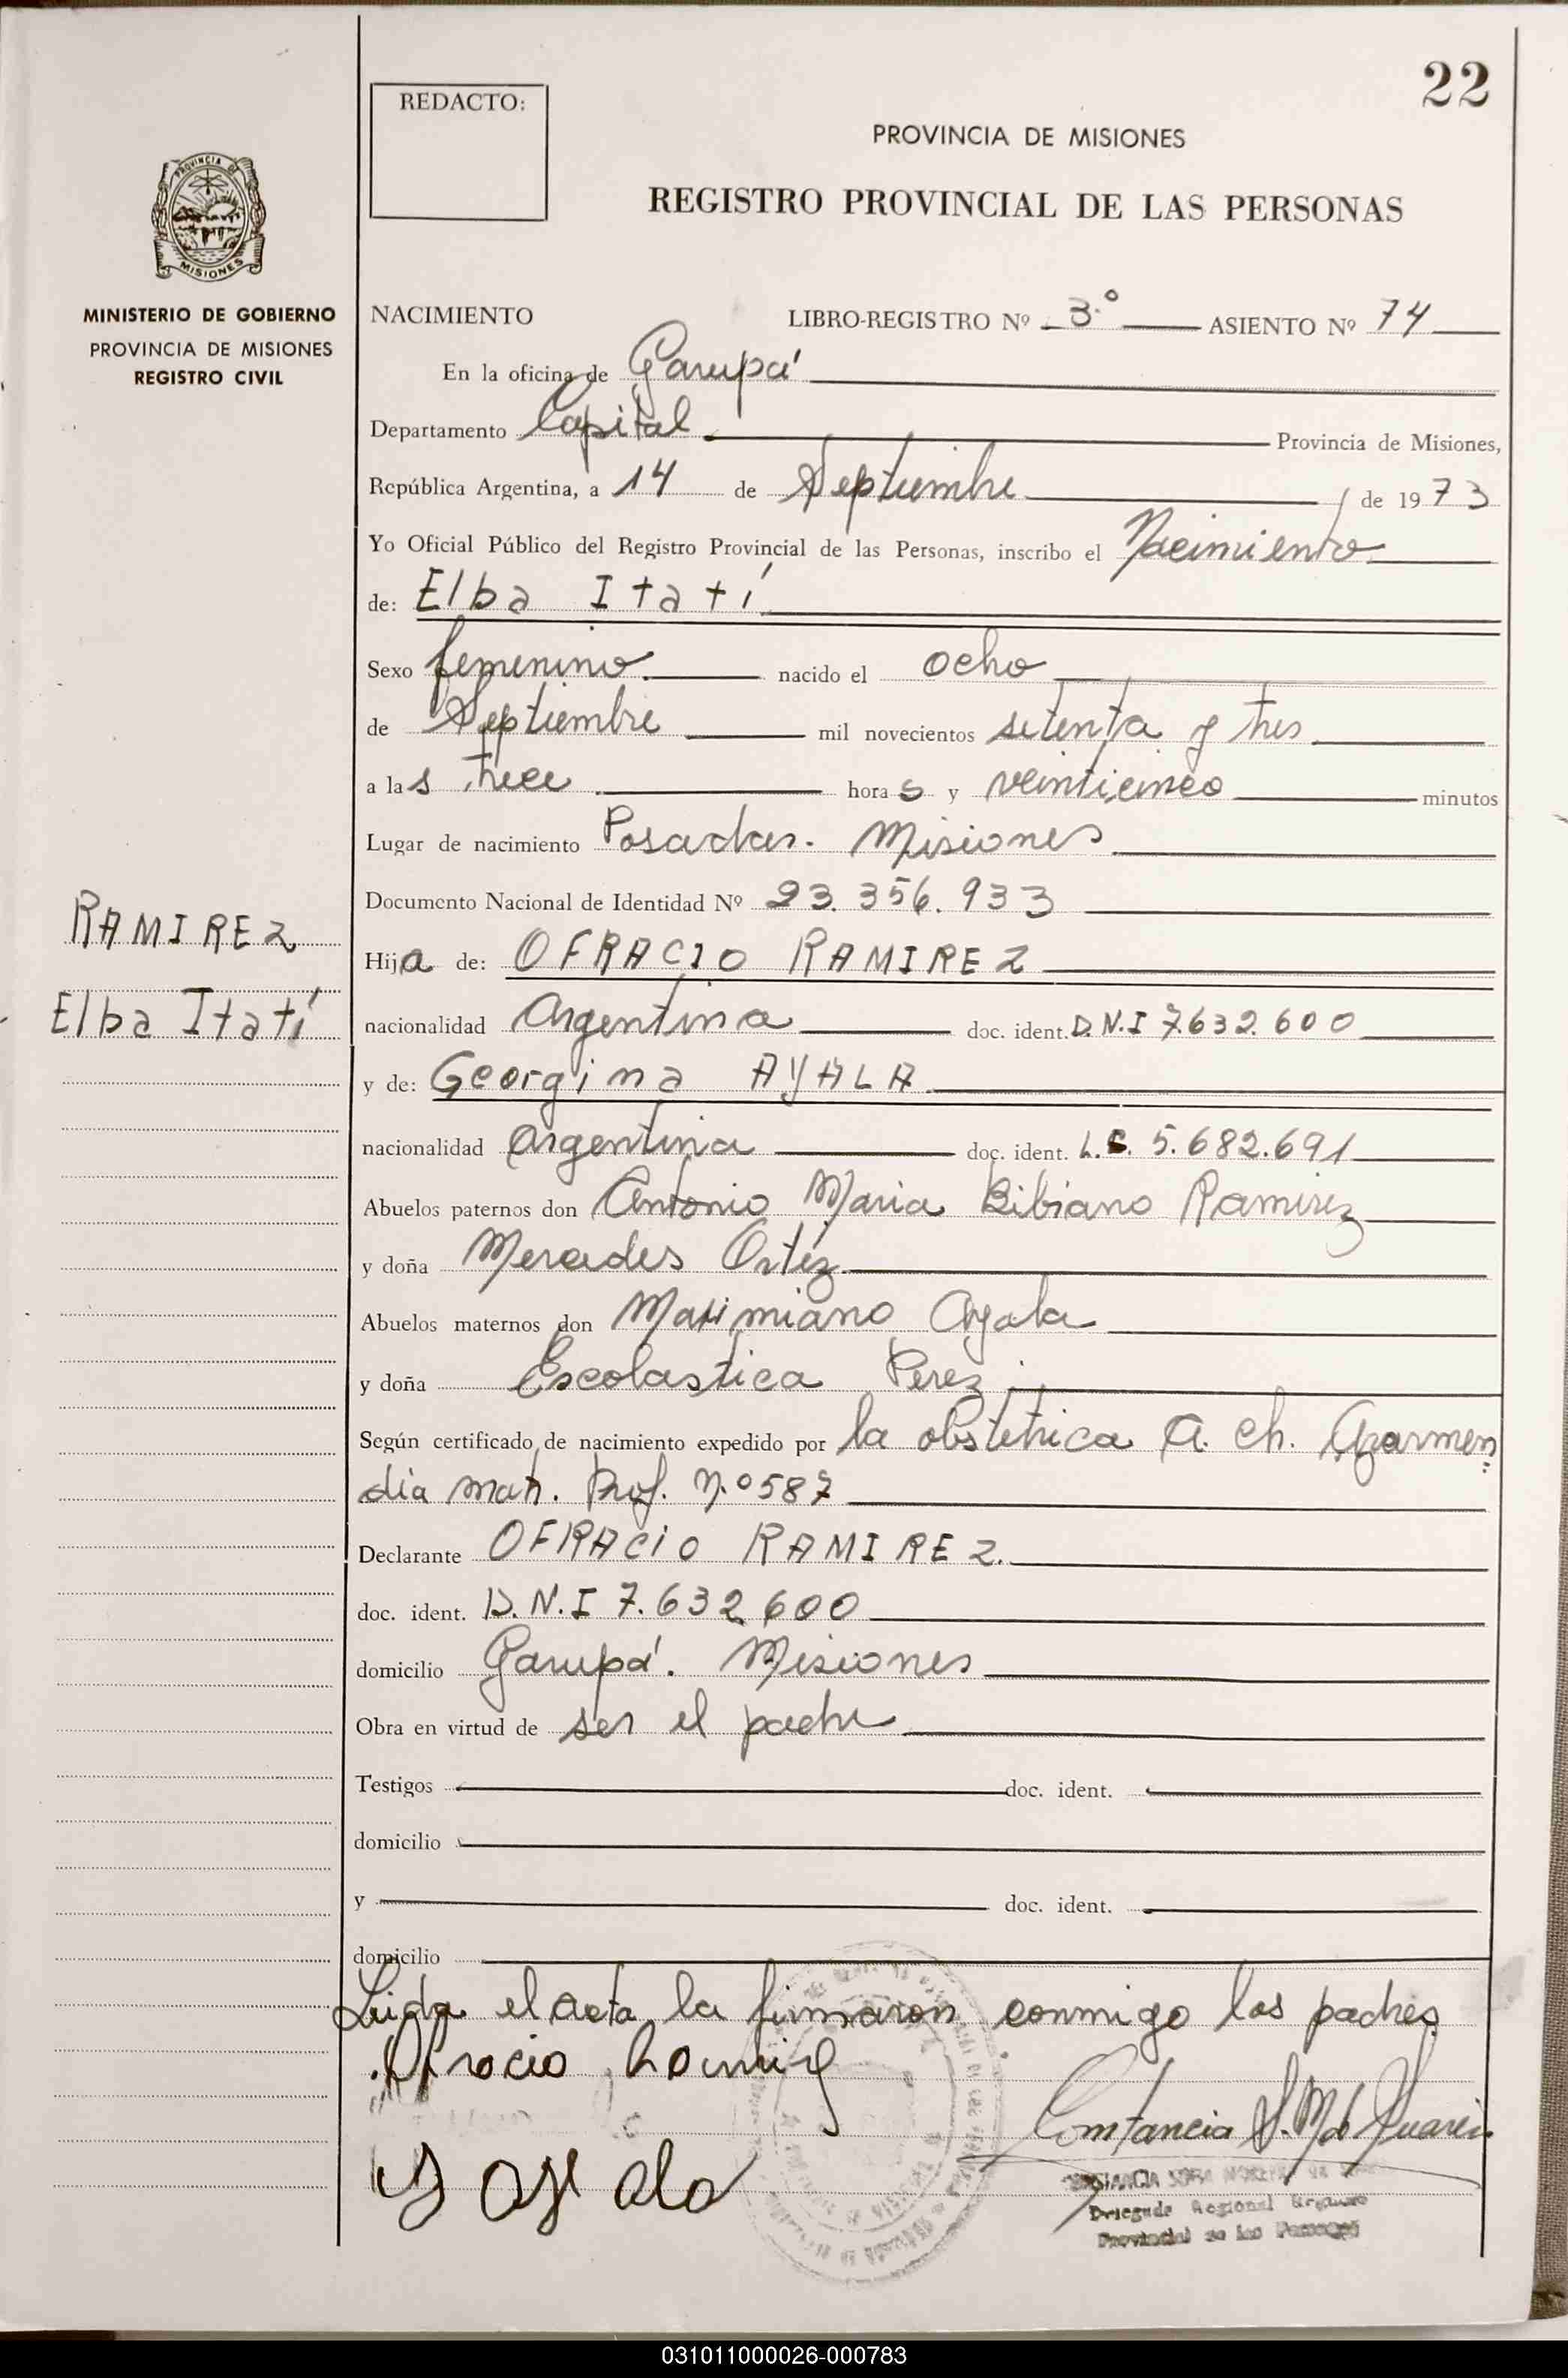 22
REDACTO:
PROVINCIA DE MISIONES
REGISTRO PROVINCIAL DE LAS PERSONAS
PROVINCIA DE
MISIONES
MINISTERIO DE GOBIERNO
PROVINCIA DE MISIONES
REGISTRO CIVIL
NACIMIENTO LIBRO-REGISTRO Nº 3.º ASIENTO Nº 74
En la oficina de Garupá
Departamento Capital Provincia de Misiones,
República Argentina, a 14 de Septiembre de 1973
Yo Oficial Público del Registro Provincial de las Personas, inscribo el Nacimiento
de: Elba Itatí
Sexo femenino nacido el ocho
de Septiembre mil novecientos setenta y tres
a las trece horas y veinticinco minutos
Lugar de nacimiento Posadas. Misiones
Documento Nacional de Identidad Nº 23.356.933
RAMIREZ
Hija de: OFRACIO RAMIREZ
Elba Itatí
nacionalidad Argentina doc. ident. D.N.I 7.632.600
y de: Georgina AYALA
nacionalidad Argentina doc. ident. L.C. 5.682.691
Abuelos paternos don Antonio Maria Bibiano Ramirez
y doña Mercedes Ortíz
Abuelos maternos don Maximiano Ayala
y doña Escolastica Perez
Según certificado de nacimiento expedido por la obstetrica A. Ch. Azarmen
dia mat. Prof. N.º 587
Declarante OFRACIO RAMIREZ.
doc. ident. D.N.I 7.632.600
domicilio Garupá. Misiones
Obra en virtud de ser el padre
Testigos doc. ident.
domicilio
y doc. ident.
domicilio
Leida el acta, la firmaron conmigo los padres.
Ofracio Ramirez
Constancia S. M. de Juarez
G ayala
Delegada Regional Registro
Provincial de las Personas
031011000026-000783